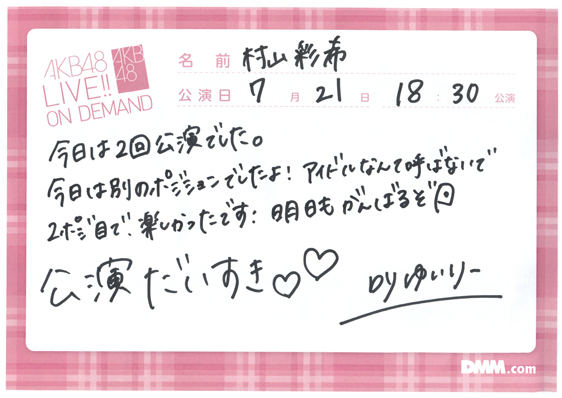 AKB48
LIVE!!
ON DEMAND
AKB
48
名 前 村山彩希
公演日 7 月 21 日 18:30 公演
今日は2回公演でした。
今日は別のポジションでしたよ! アイドルなんて呼ばないで
2ポジ目で、楽しかったです! 明日もがんばるぞ
公演だいすき♡♡
by ゆいりー
DMM.com